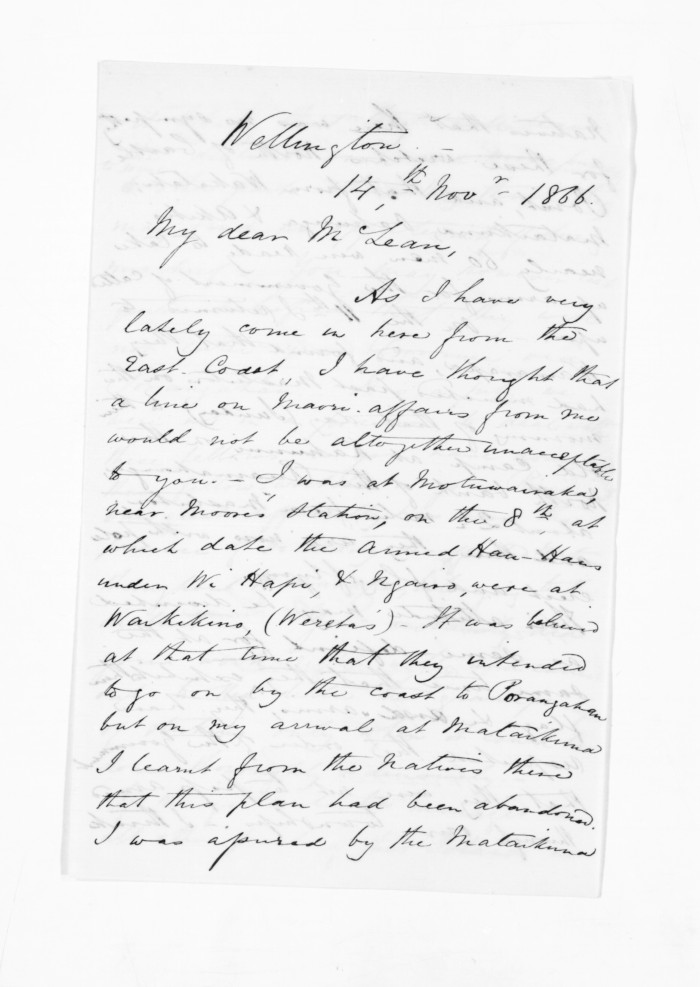 Wellington. –
14,th Novr 1866.
My dear McLean,
As I have very
lately come in here from the
East. Coast, I have thought that
a line on Maori. affairs from me
would not be altogether unacceptable
to you. –, I was at Motuwairaka,
near Moores Station, on the 8th, at
which date the armed Hau-Haus
under Wi Hapi, & Ngairo, were at
Waikikino, (Wereta's) – It was believed
at that time that they intended
to go on by the coast to Porangahau
but on my arrival at Mataikuna
I learnt from the Natives there
that this plan had been abandoned.
I was assured by the Mataikuna